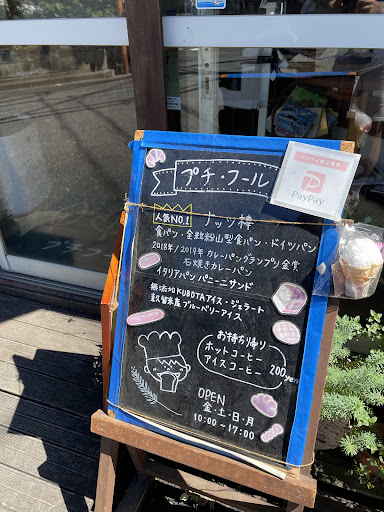 プチ・フール
人気NO.1 ナッツ棒
食パン・全粒粉山型食パン・ドイツパン
2018年/2019年 カレーパングランプリ金賞
石焼きカレーパン
イタリアパン パーニーニサンド
無添加KUBOTAアイス・ジェラート
軽井沢産ブルーベリーアイス
お持ち帰り
ホットコーヒー
アイスコーヒー
200yen
OPEN
金・土・日・月
10:00~17:00
PayPay